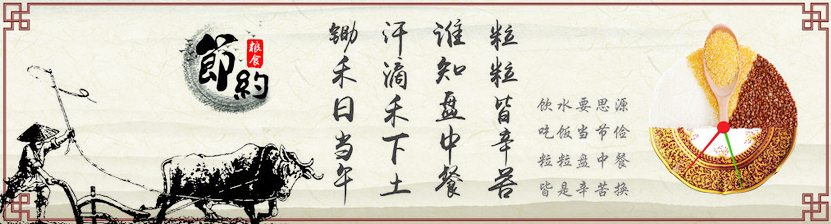 節約
粮食
锄禾日当午
汗滴禾下土
谁知盘中餐
粒粒皆辛苦
饮水要思源
吃饭当节俭
粒粒盘中餐
皆是辛苦换